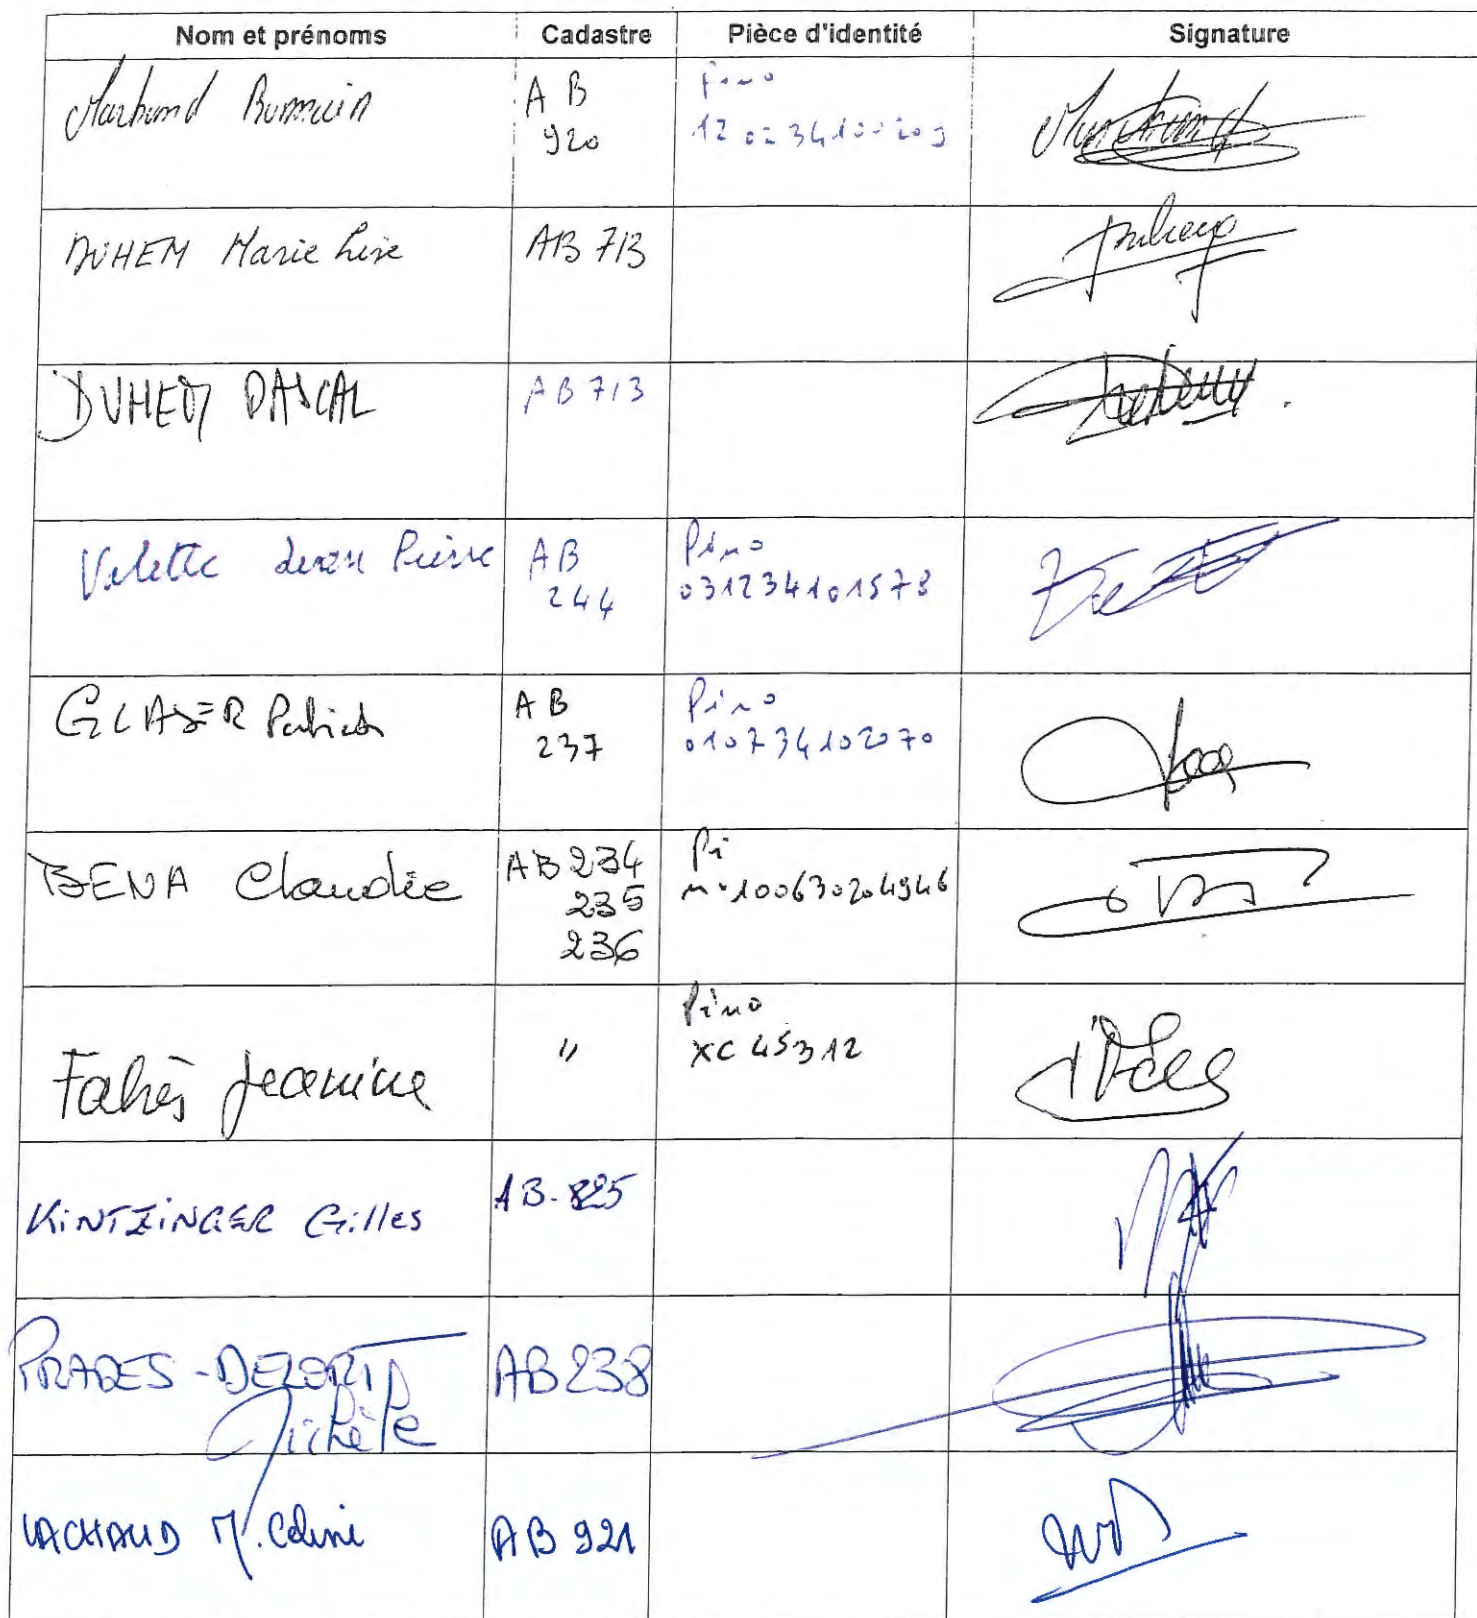 Nom et prénoms Cadastre Pièce d'identité Signature
A B
920
DUHEM Marie Lise AB 713
DUHEM PASCAL AB 713
Valette Jean Pierre AB
244
Pi no
031234101578
GLASER Patrick AB
237
Pi no
010734102070
BENA Claudie AB 234
235
236
Pi
n° 100630204946
Fabrès Jeanine "
Pi no
XC 45312
KiNTZiNGER Gilles AB-825
PRADES-DELORT
Michèle
AB 238
LACHAUD M. Céline AB 921